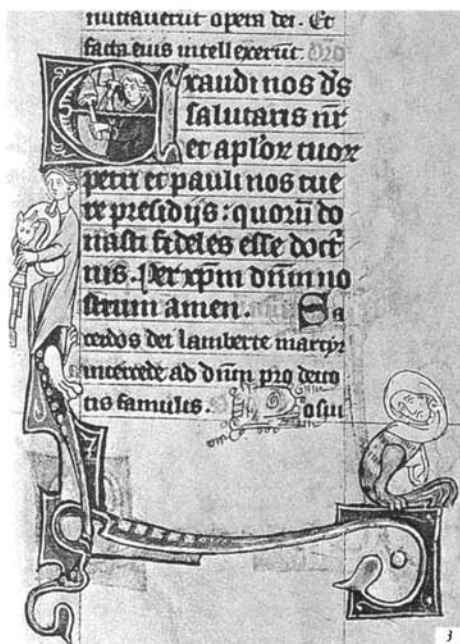 nuttauerūt opera dei. Et
facta eius intellexerūt. Oro
Exaudi nos d̄s
salutaris nr̄
et apl'oꝝ tuoꝝ
petri et pauli nos tue
re presidijs: quorū do
nasti fideles esse doct
nis. Per xp̄m dn̄m no
strum amen. Sa
cerdos dei lamberte martyr
intercede ad dn̄m pro deuo
tis famulis. osui
3